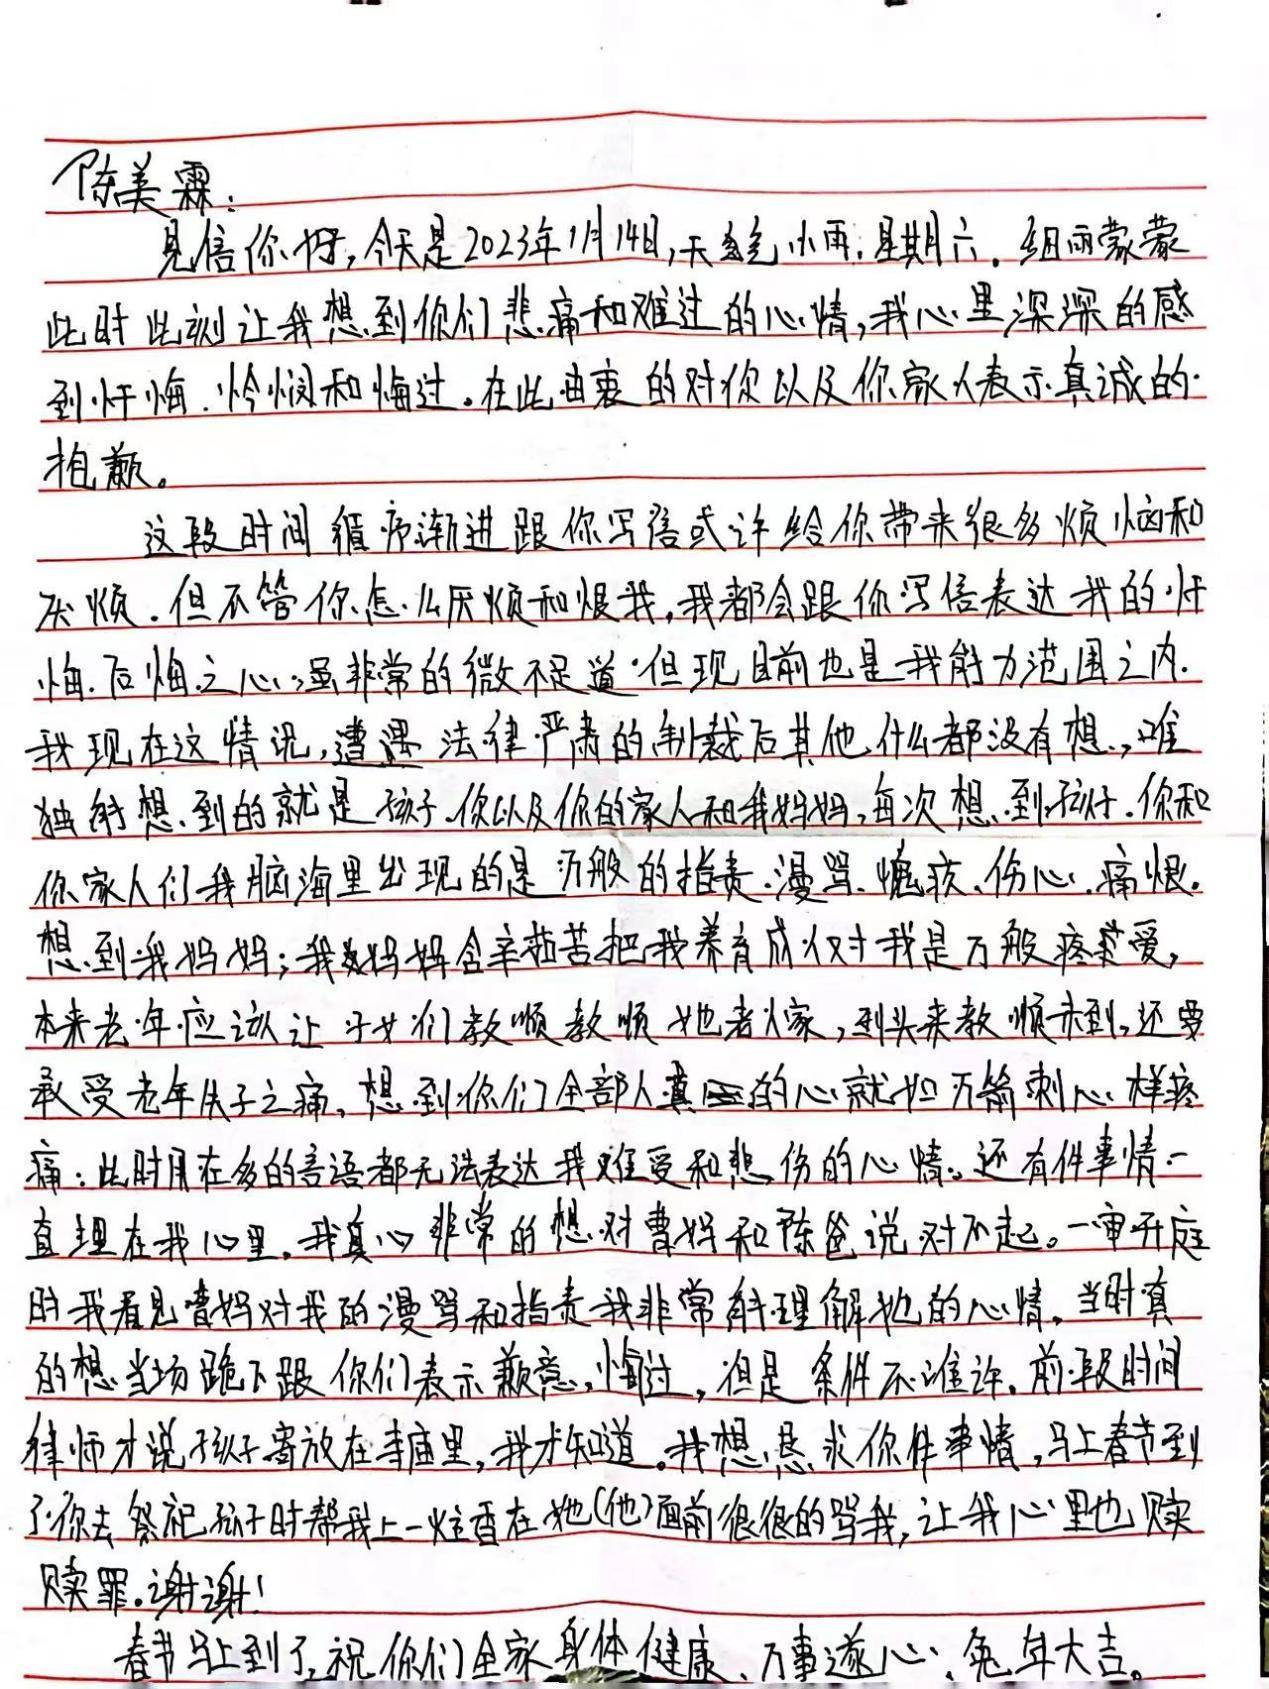 陈美霖：
见信你好，今天是2023年1月14日，天气小雨.星期六。细雨蒙蒙
此时此刻让我想到你们悲痛和难过的心情，我心里深深的感
到忏悔.怜悯和悔过。在此由衷的对你以及你家人表示真诚的
抱歉。
这段时间循序渐进跟你写信或许给你带来很多烦恼和
厌烦.但不管你怎么厌烦和恨我，我都会跟你写信表达我的忏
悔.后悔之心。虽非常的微不足道.但现目前也是我能力范围之内.
我现在这情况，遭遇法律严肃的制裁后其他什么都没有想，唯
独能想到的就是孩子.你以及你的家人和我妈妈，每次想到孩子.你和
你家人们我脑海里出现的是万般的指责.漫骂.愧疚.伤心.痛恨。
想到我妈妈；我妈妈含辛茹苦把我养育成人对我是万般疼爱，
本来老年应该让子女们教顺教顺她老人家，到头来教顺未到，还要
承受老年失子之痛，想到你们全部人真的心就如万箭刺心样疼
痛：此时用在多的言语都无法表达我难受和悲伤的心情。还有件事情一
直埋在我心里。我真心非常的想对曹妈和陈爸说对不起。一审开庭
时我看见曹妈对我的漫骂和指责我非常能理解她的心情。当时真
的想当场跪下跟你们表示歉意，悔过，但是条件不准许。前段时间
律师才说孩子寄放在寺庙里，我才知道。我想恳求你件事情，马上春节到
了你去祭祀孩子时帮我上一炷香在她(他)面前很很的骂我，让我心里也赎
赎罪。谢谢！
春节马上到了，祝你们全家身体健康、万事遂心、兔年大吉。